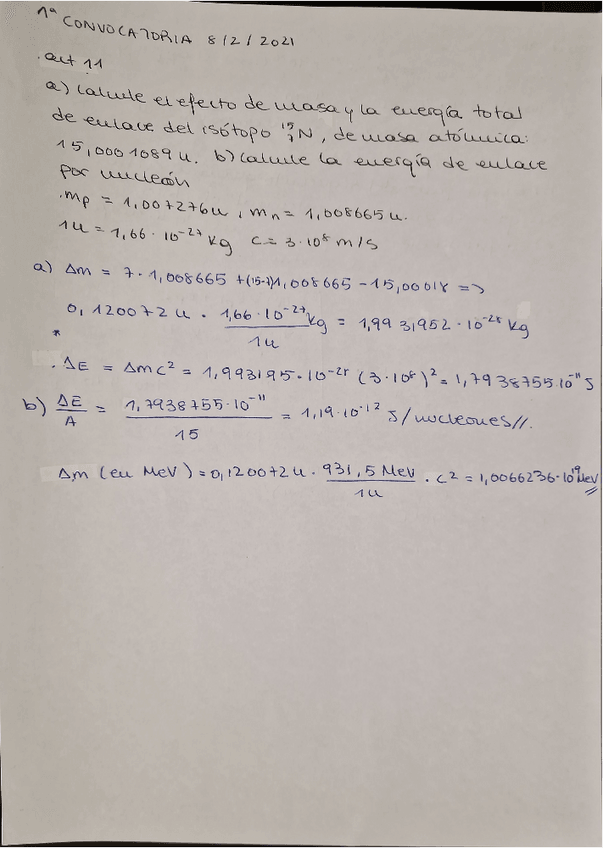 1ª CONVOCATORIA 8/2/2021
.act 11
a) Calcule el efecto de masa y la energía total
de enlace del isótopo ¹⁵₇N, de masa atómica:
15,0001089 u. b) Calcule la energía de enlace
por nucleón
.mp = 1,007276u, mn = 1,008665 u.
1u = 1,66 · 10⁻²⁷ kg c = 3·10⁸ m/s
a) Δm = 7 · 1,008665 + (15-7)1,008665 - 15,00018 =>
0,120072 u · 1,66·10⁻²⁷ kg / 1u = 1,993,952 · 10⁻²⁸ kg
*
. ΔE = Δmc² = 1,993195 · 10⁻²⁸ (3·10⁸)² = 1,7938755·10⁻¹¹ J
b) ΔE/A = 1,7938755·10⁻¹¹ / 15 = 1,19·10⁻¹² J/nucleones//.
Δm (en MeV) = 0,120072 u · 931,5 MeV / 1u · c² = 1,0066236·10¹⁹ MeV //